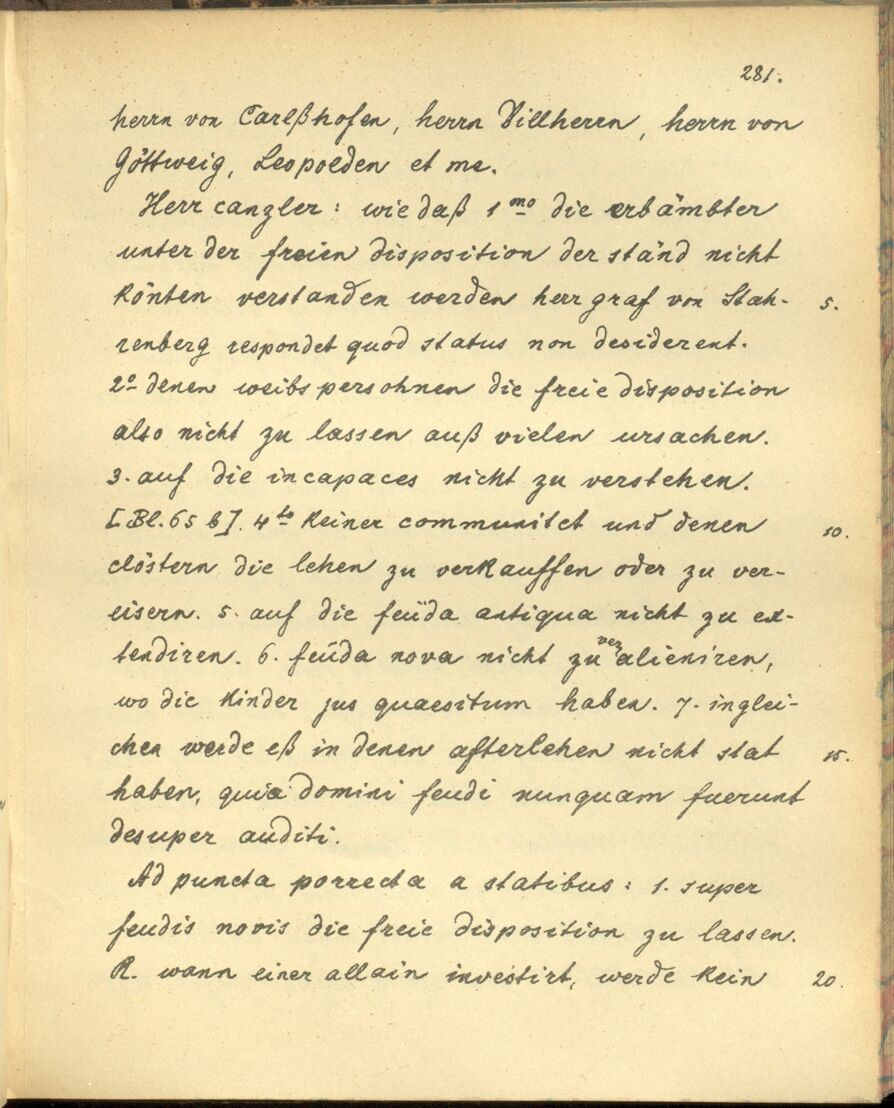 281.
herrn von Carlßhofen, herrn Villherrn, herrn von
Göttweig, Leopolden et me.
Herr canzler: wie daß 1mo die erbämbter
unter der freien disposition der ständ nicht
könten verstanden werden herr graf von Stah-
5.
renberg respondet quod status non desiderent.
2o denen weibspersohnen die freie disposition
also nicht zu lassen auß vielen ursachen.
3. auf die incapaces nicht zu verstehen.
[Bl. 65 b]. 4to keiner communitet und denen
10.
clöstern die lehen zu verkauffen oder zu ver-
eisern. 5. auf die feüda antiqua nicht zu ex-
tendiren. 6. feüda nova nicht zu veralieniren,
wo die kinder jus quaesitum haben. 7. inglei-
chen werde eß in denen afterlehen nicht stat
15.
haben, quia domini feudi nunquam fuerunt
desuper auditi.
Ad puncta porrecta a statibus: 1. super
feudis novis die freie disposition zu lassen.
R. wann einer allain investirt, werde kein
20.